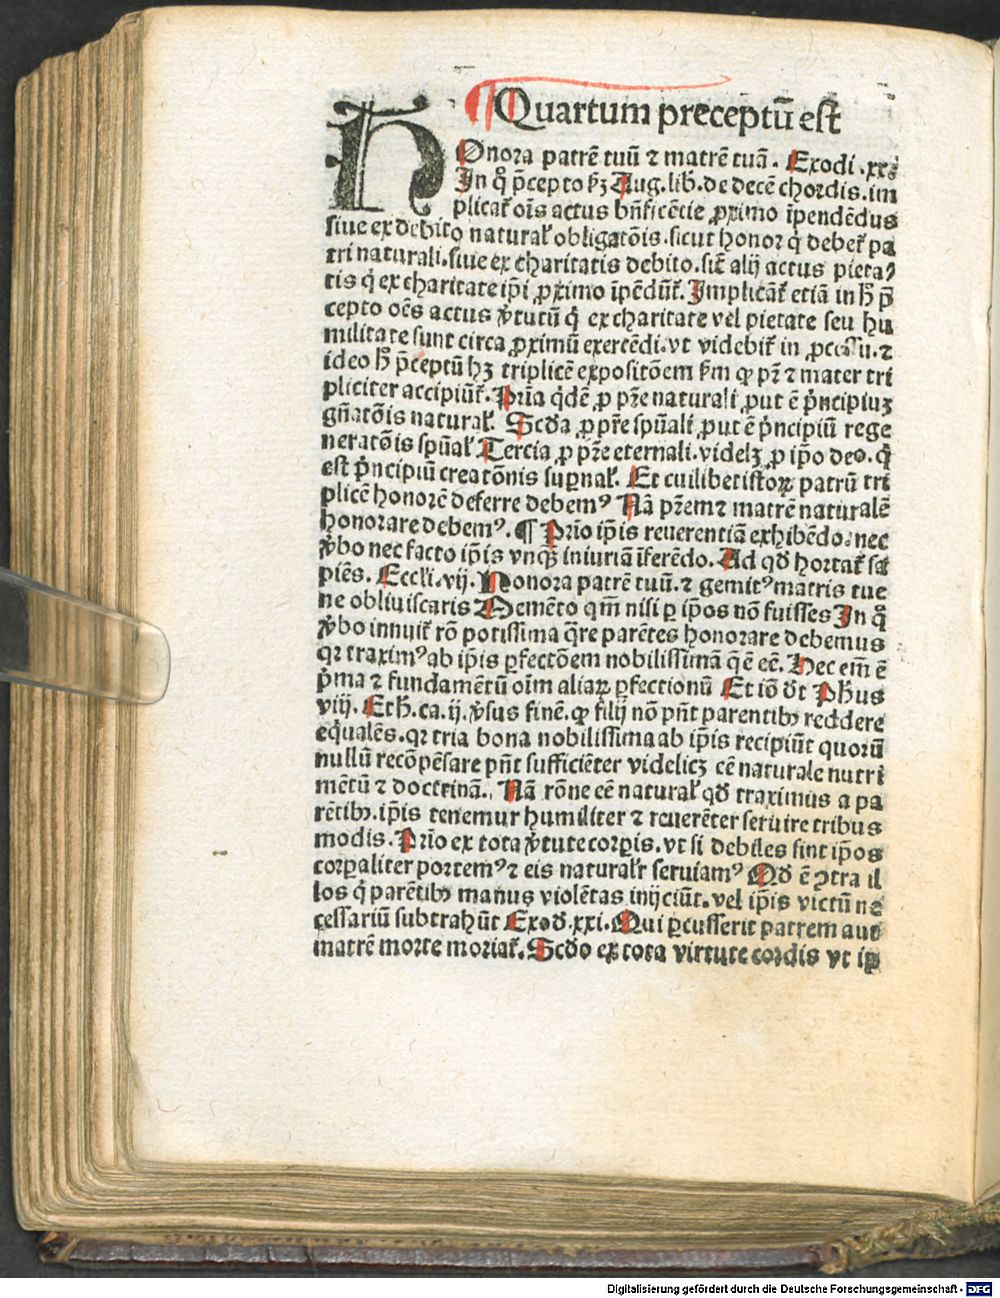 ¶ Quartum preceptū est
HOnora patrē tuū ⁊ matrē tuā. Exodi .xx.
In q̊ p̄cepto ẜm Aug. lib. de decē chordis. im
plicat᷑ oīs actus bn̄ficētie ꝓximo īpendēdus
siue ex debito natural᷑ obligatōis. sicut honor q̇ debet᷑ pa
tri naturali. siue ex charitatis debito. sic̄ alij actus pieta⸗
tis q̇ ex charitate ip̄i ꝓximo īpēdūt᷑. Implicāt᷑ etiā in h̄ p̄
cepto oēs actus v̓tutū q̇ ex charitate vel pietate seu hu
militate sunt circa ꝓximū exercēdi. vt videbit᷑ in ꝓcessu. ⁊
ideo h̄ p̄ceptū hꝫ triplicē expositōem ẜm ꝙ pr̄ ⁊ mater tri
pliciter accipiūt᷑. Prīa q̇dē ꝓ pr̄e naturali ꝓut ē p̓ncipiuꝫ
gn̄atōis natural᷑. Scd̄a ꝓ pr̄e spūali ꝓut ē p̓ncipiū rege
neratōis spūal᷑ Tercia ꝓ pr̄e eternali. videlꝫ ꝓ ip̄o deo. q̇
est p̓ncipiū creatōnis suꝑnal᷑. Et cuilibet istoꝝ patrū tri
plicē honorē deferre debemꝰ Nā pr̄em ⁊ matrē naturalē
honorare debemꝰ. ¶ Prīo ip̄is reuerentiā exhibēdo. nec
v̓bo nec facto ip̄is vnqꝫ iniuriā īferēdo. Ad qd̄ hortat᷑ sa
piēs. Eccl̄i. vij. Honora patrē tuū. ⁊ gemitꝰ matris tue
ne obliuiscaris Memēto qm̄ nisi ꝑ ip̄os nō fuisses In q̊
v̓bo innuit᷑ rō potissima q̄re parētes honorare debemus
qꝛ traximꝰ ab ip̄is ꝑfectōem nobilissimā q̄ ē eē. Hec em̄ ē
p̓ma ⁊ fundamētū oīm aliaꝝ ꝑfectionū Et iō dt̄ Ph̄us
viij. Eth̄. ca. ij. v̓sus finē. ꝙ filij nō pn̄t parentibꝫ reddere
eq̇ualēs. qꝛ tria bona nobilissima ab ip̄is recipiūt quorū
nullū recōpēsare pn̄t sufficiēter videlicꝫ eē naturale nutri
mētū ⁊ doctrinā. Nā rōne eē natural᷑ qd̄ traximus a pa
rētibꝫ. ip̄is tenemur humiliter ⁊ reuerēter seruire tribus
modis. Prīo ex tota v̓tute corꝑis. vt si debiles sint ip̄os
corꝑaliter portemꝰ ⁊ eis natural᷑r seruiamꝰ Qd̄ ē ꝯtra il
los q̇ parētibꝫ manus violētas inijciūt. vel ip̄is victū ne
cessariū subtrahūt Exod̄. xxi. Qui ꝑcusserit patrem aut
matrē morte moriat᷑. Scd̄o ex tota virtute cordis vt ip̄
Digitalisierung gefördert durch die Deutsche Forschungsgemeinschaft - DFG